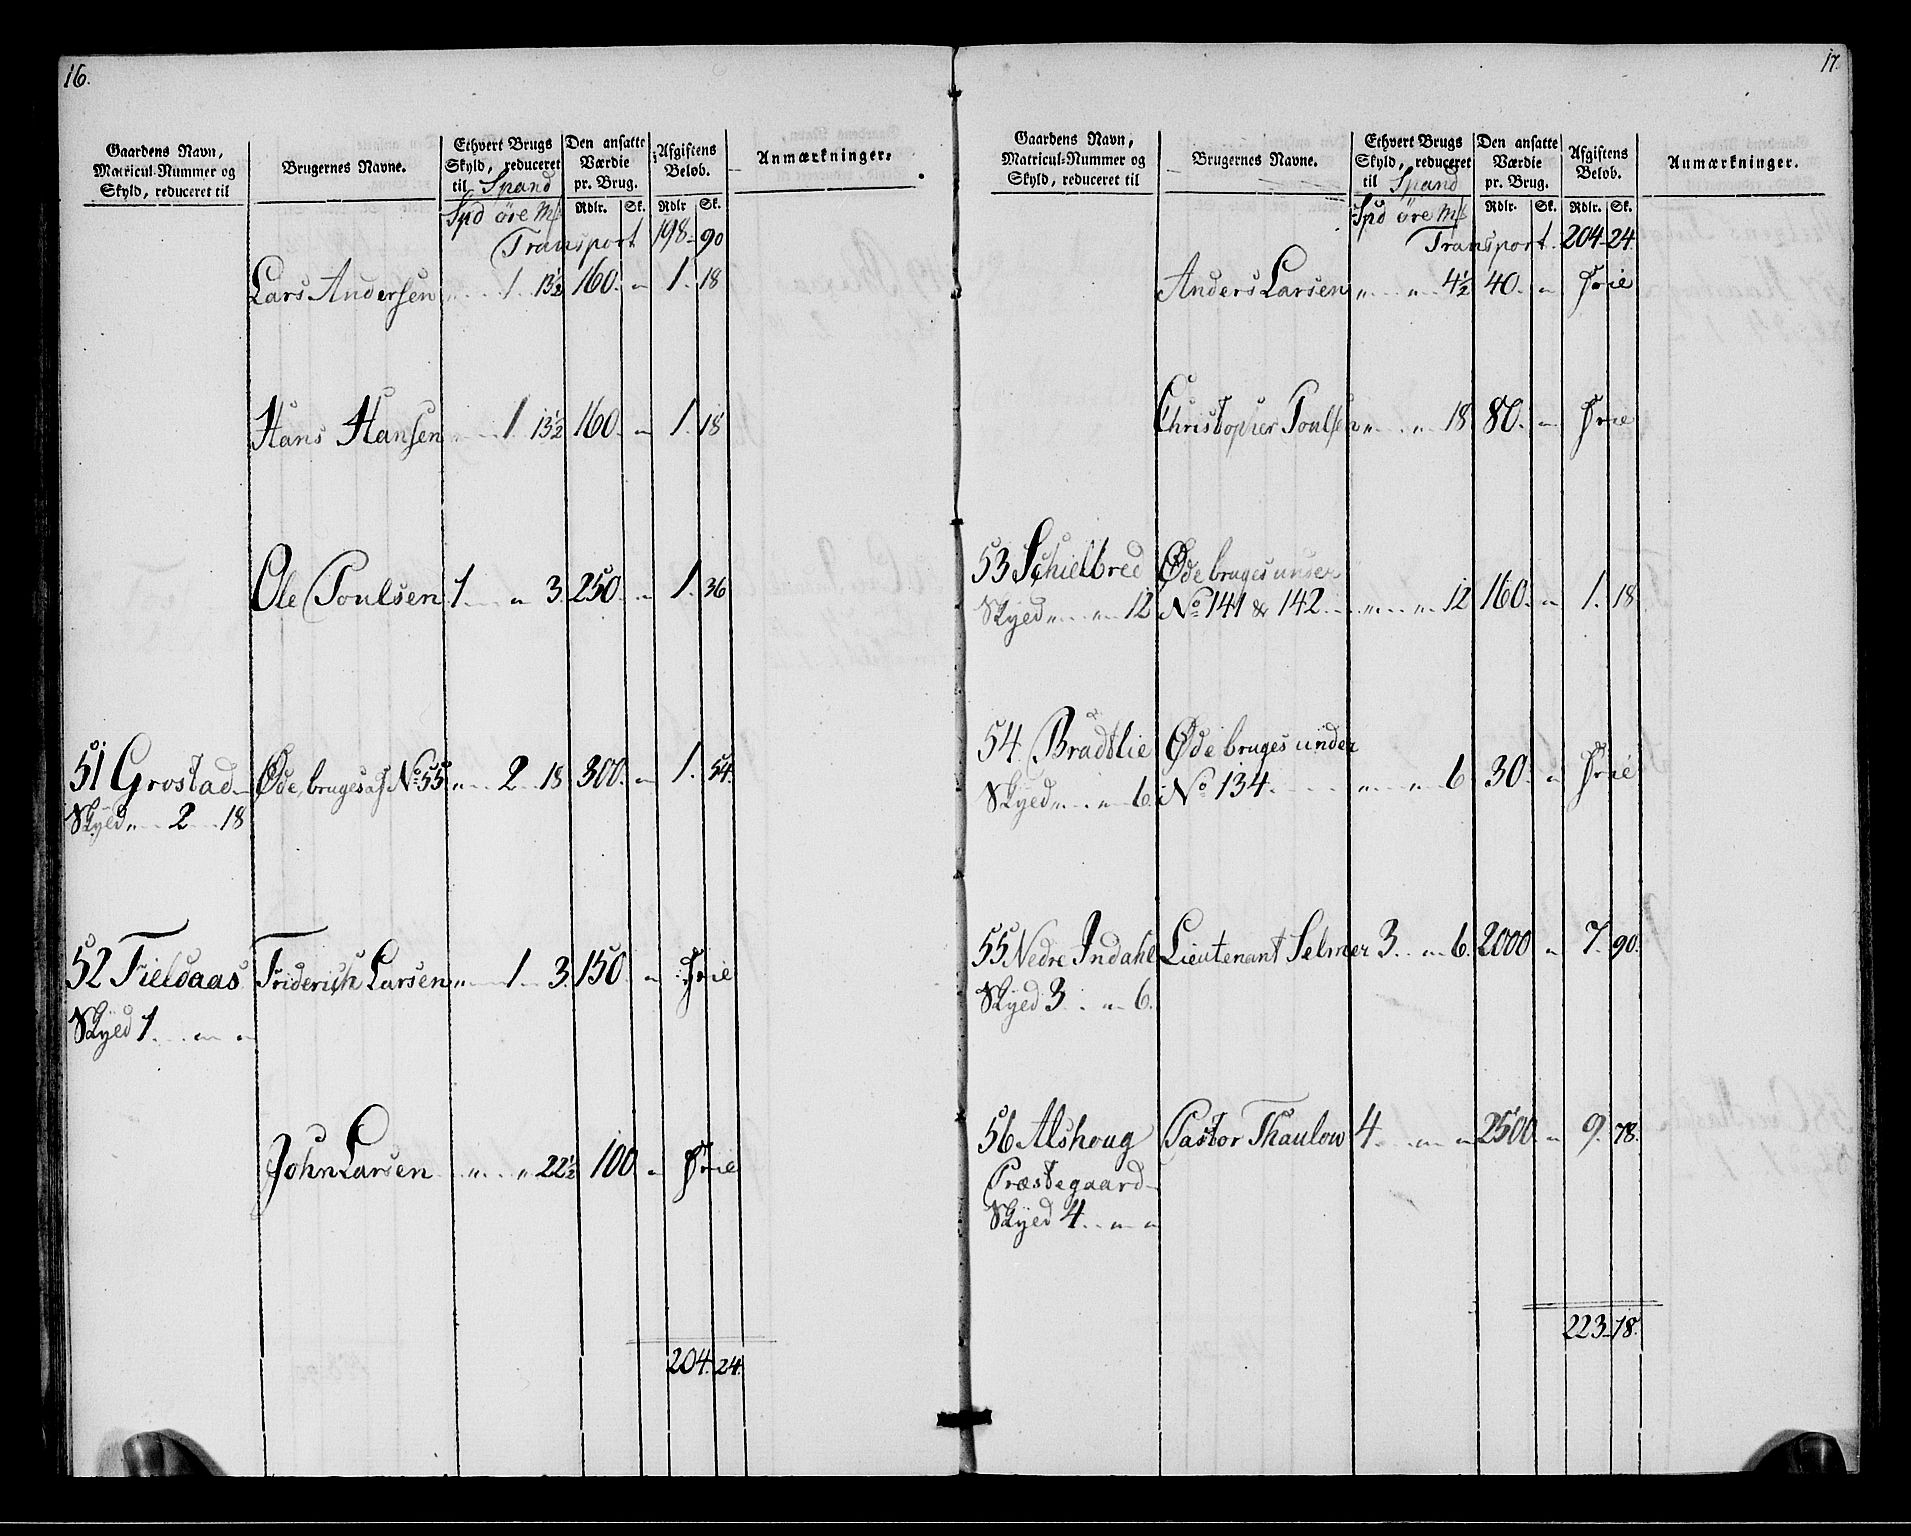 16.
Gaardens Navn, Matricul-Nummer og Skyld, reduceret til
Brugernes Navne.
Ethvert Brugs Skyld, reduceret til Spand
Den ansatte Værdie pr. Brug.
Afgiftens Beløb.
Anmærkninger.
Spd øre Mk Rdlr. Sk. Rdlr Sk.
Transport 198 - 90
Lars Andersen „ 1 13½ 160. „ 1. 18
Hans Hansen „ 1 13½ 160. „ 1. 18
Ole Poulsen 1 „ 3. 250. „ 1. 36
51 Grostad Øde, bruges af No 55 „ 2 18 300. „ 1. 54.
Skyld „ 2 18
52 Fieldaas Friderich Larsen „ 1 3. 150 „ Frie
Skyld 1. „ „
John Larsen „ „ 22½ 100 „ Frie
204. 24.
17.
Gaardens Navn, Matricul-Nummer og Skyld, reduceret til
Brugernes Navne.
Ethvert Brugs Skyld, reduceret til Spand
Den ansatte Værdie pr. Brug.
Afgiftens Beløb.
Anmærkninger.
Spd øre Mk Rdlr. Sk. Rdlr. Sk.
Transport. 204 - 24.
Anders Larsen „ „ 4½ 40. „ Frie
Christopher Poulsen „ „ 18 80. „ Frie
53 Schielbred Øde bruges under
Skyld „ „ 12 No 141 & 142 „ „ 12 160. „ 1. 18.
54. Bradtlie Øde bruges under
Skyld „ „ 6. No 134. „ „ 6. 30. „ Frie
55 Nedre Indahl Lieutenant Selmer 3. „ 6. 2000 „ 7. 90.
Skyld 3. „ 6.
56 Alshoug Pastor Thaulow 4 „ „ 2500. „ 9. 78.
Præstegaard
Skyld 4. „ „
223 - 18.